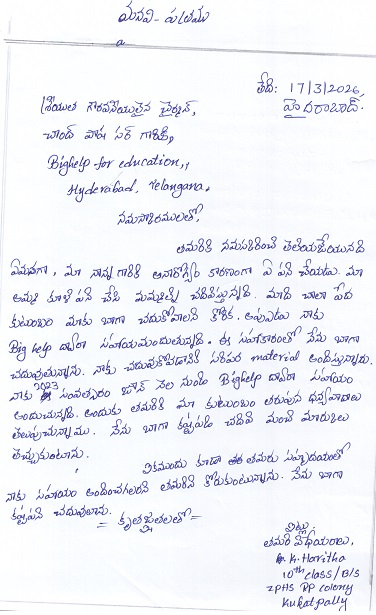 మనవి - పత్రము
తేది: 17/3/2026,
హైదరాబాద్.
శ్రీయుత గౌరవనీయులైన చైర్మన్,
చాంద్ పాషా సర్ గారికి,
Bighelp for education,,
Hyderabad, Telangana,
నమస్కారములతో,
తమరికి నమస్కరించి తెలియజేయునది
ఏమనగా, మా నాన్న గారికి అనారోగ్యం కారణంగా ఏ పని చేయడు. మా
అమ్మ కూలి పని చేసి మమ్మల్ని చదివిస్తున్నది. మాది చాలా పేద
కుటుంబం మాకు బాగా చదుకోవాలని కోరిక. అప్పుడు నాకు
Big help ద్వారా సహాయమందుతున్నది. ఈ సహాకారంతో నేను బాగా
చదువుతున్నాను. నాకు చదువుకోవడానికి సరిపడ material అందిస్తున్నారు.
నాకు 2023 సంవత్సరం జూన్ నెల నుండి Bighelp ద్వారా సహాయం
అందుచున్నది. అందుకు తమరికి మా కుటుంబం తరుపున ధన్యవాదాలు
తెలుపుచున్నాము. నేను బాగా కష్టపడి చదివి మంచి మార్కులు
తెచ్చుకుంటాను.
ఇకముందు కూడా తమరు సహృదయంతో
నాకు సహాయం అందించగలరని తమరిని కోరుకుంటున్నాను. నేను బాగా
కష్టపడి చదువుతాను.
= కృతజ్ఞతలతో =
ఇట్లు,
తమరి విధేయరాలు,
K. Haritha
10th class / B/S
ZPHS PP colony
Kukatpally